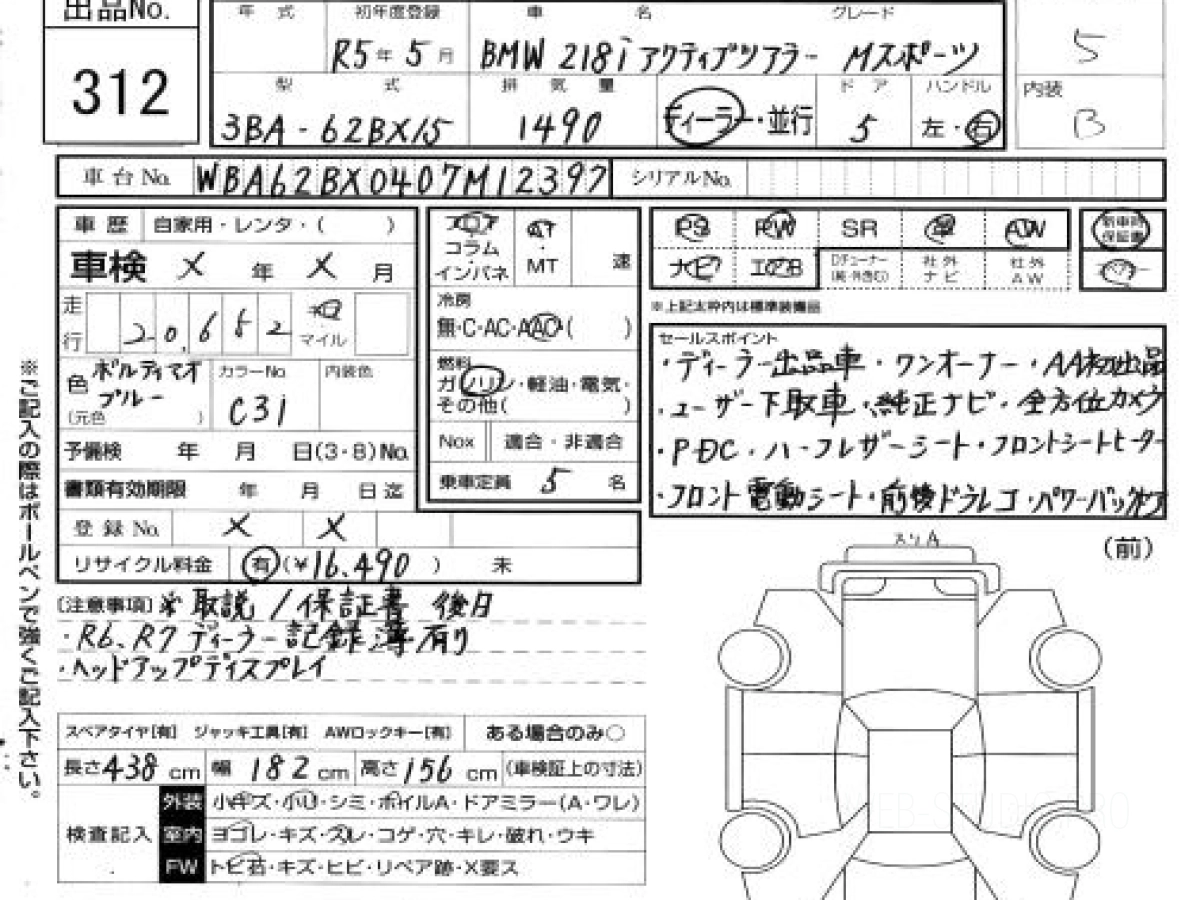 出品No.
312
年式 初年度登録 車名 グレード
R5年5月 BMW 218i アクティブツアラー Mスポーツ
5
型式 排気量 ドア ハンドル 内装
3BA-62BX15 1490 ディーラー・並行 5 左・右 B
車台No. WBA62BX0407M12397 シリアルNo.
車歴 自家用・レンタ・( )
車検 X 年 X 月
走行 20,652 マイル
色 ポルティマオブルー (元色 ) カラーNo. C31 内装色
予備検 年 月 日(3・8)No.
書類有効期限 年 月 日迄
登録No. X X
リサイクル料金 有(¥16,490) 未
フロア コラム インパネ
AT・MT 速
冷房
無・C・AC・AAC( )
燃料
ガソリン・軽油・電気・
その他( )
Nox 適合・非適合
乗車定員 5 名
PS PW SR 革 AW 新車時保証書
ナビ エアB Dチューナー(純・外含む) 社外ナビ 社外AW
※上記太枠内は標準装備品
セールスポイント
・ディーラー出品車・ワンオーナー・AA初出品
・ユーザー下取車・純正ナビ・全方位カメラ
・PDC・ハーフレザーシート・フロントシートヒーター
・フロント電動シート・前後ドラレコ・パワーバックドア
〔注意事項〕※取説/保証書 後日
・R6、R7 ディーラー記録簿有り
・ヘッドアップディスプレイ
スペアタイヤ[有] ジャッキ工具[有] AWロックキー[有] ある場合のみ○
長さ438cm 幅182cm 高さ156cm (車検証上の寸法)
検査記入
外装 小キズ・小凹・シミ・ホイルA・ドアミラー(A・ワレ)
室内 ヨゴレ・キズ・スレ・コゲ・穴・キレ・破れ・ウキ
FW トビ石・キズ・ヒビ・リペア跡・X要ス
スリA
(前)
※ご記入の際はボールペンで強くご記入下さい。